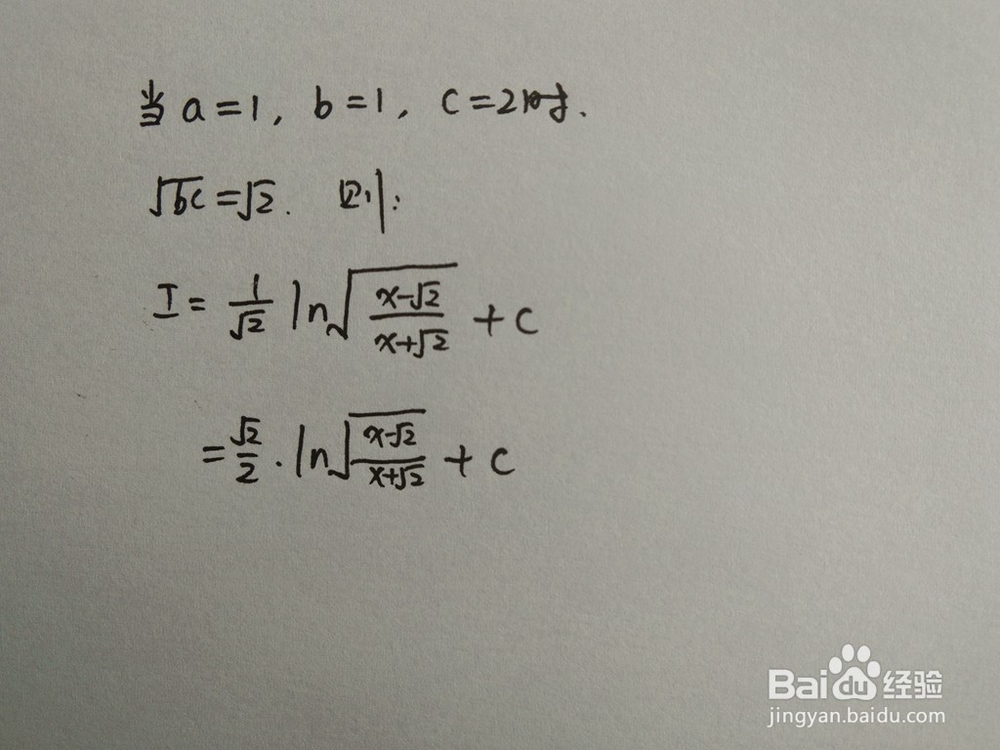 当 a=1, b=1, c=2时.
√bc=√2. 则:
I = 1/√2 ln√((x-√2)/(x+√2)) + C
= √2/2 · ln√((x-√2)/(x+√2)) + C
Baidu经验
jingyan.baidu.com